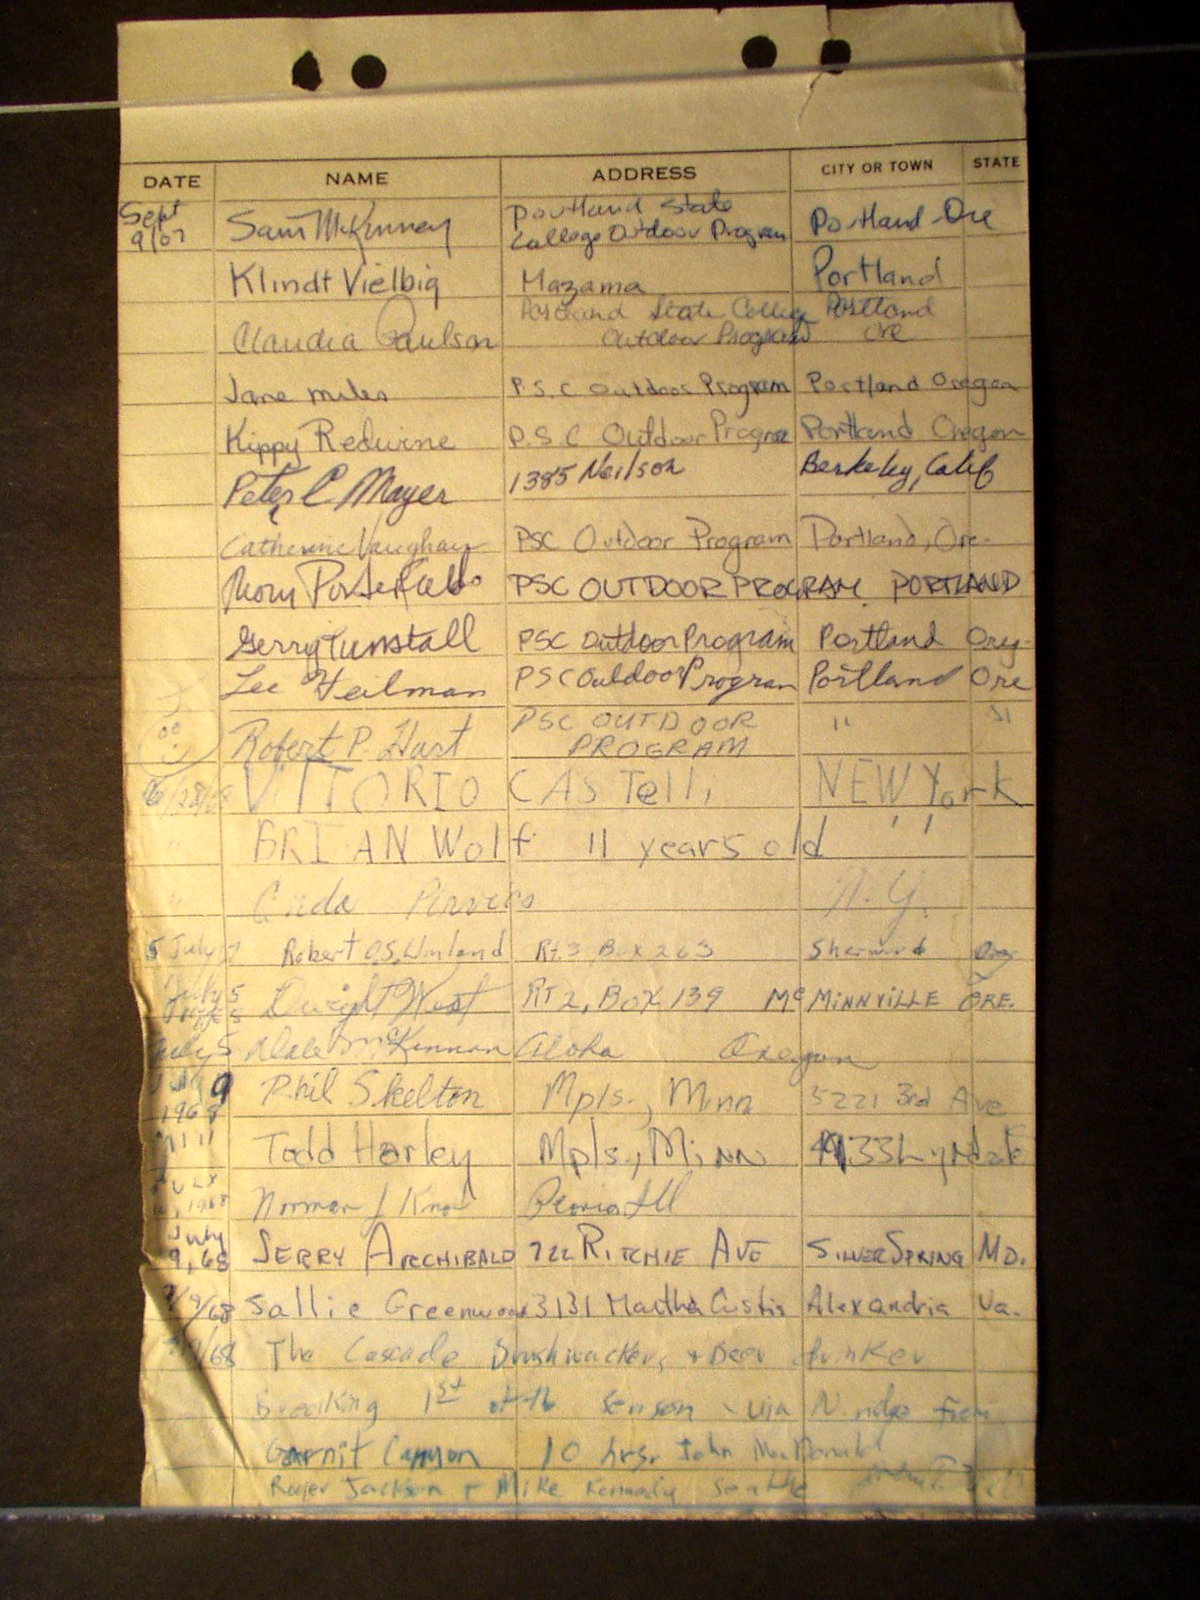 DATE NAME ADDRESS CITY OR TOWN STATE
Sept 9/67 Sam McKinney Portland State College Outdoor Program Portland Ore
Klindt Vielbig Mazama Portland
Claudia Paulson Portland State College Outdoor Program Portland Ore
Jane Miles P.S.C Outdoor Program Portland Oregon
Kippy Redwine P.S.C Outdoor Program Portland Oregon
Peter C Mayer 1385 Neilson Berkeley, Calif
Catherine Vaughan PSC Outdoor Program Portland, Ore.
PSC OUTDOOR PROGRAM PORTLAND
Gerry Tunstall PSC Outdoor Program Portland Oreg.
Lee Heilman PSC Outdoor Program Portland Ore
Robert P. Hart PSC OUTDOOR PROGRAM " "
6/28/68 VITTORIO CASTelli NEW York
" BRIAN Wolf 11 years old ' '
" N.Y.
5 July Robert O.S. Rt.3 Box 263 Sherwood Ore
July 5 Dwight West RT 2, BOX 139 McMINNVILLE ORE.
July 5 Dale McKinnon Aloha Oregon
July 9 1968 Phil Skelton Mpls., Minn 5221 3rd Ave
" " " Todd Harley Mpls., Minn 4933 Lyndale
July 1968 Norman J Peoria Ill
July 9, 68 JERRY ARCHIBALD 722 RITCHIE AVE SILVER SPRING MD.
7/9/68 Sallie Greenwood 3131 Martha Custis Alexandria Va.
/68 The Cascade Brushwackers + Beer
Breaking 1st of the season - via N. ridge from
Garnit Canyon 10 hrs. John MacDonald
Roger Jackson + Mike Kennedy Seattle